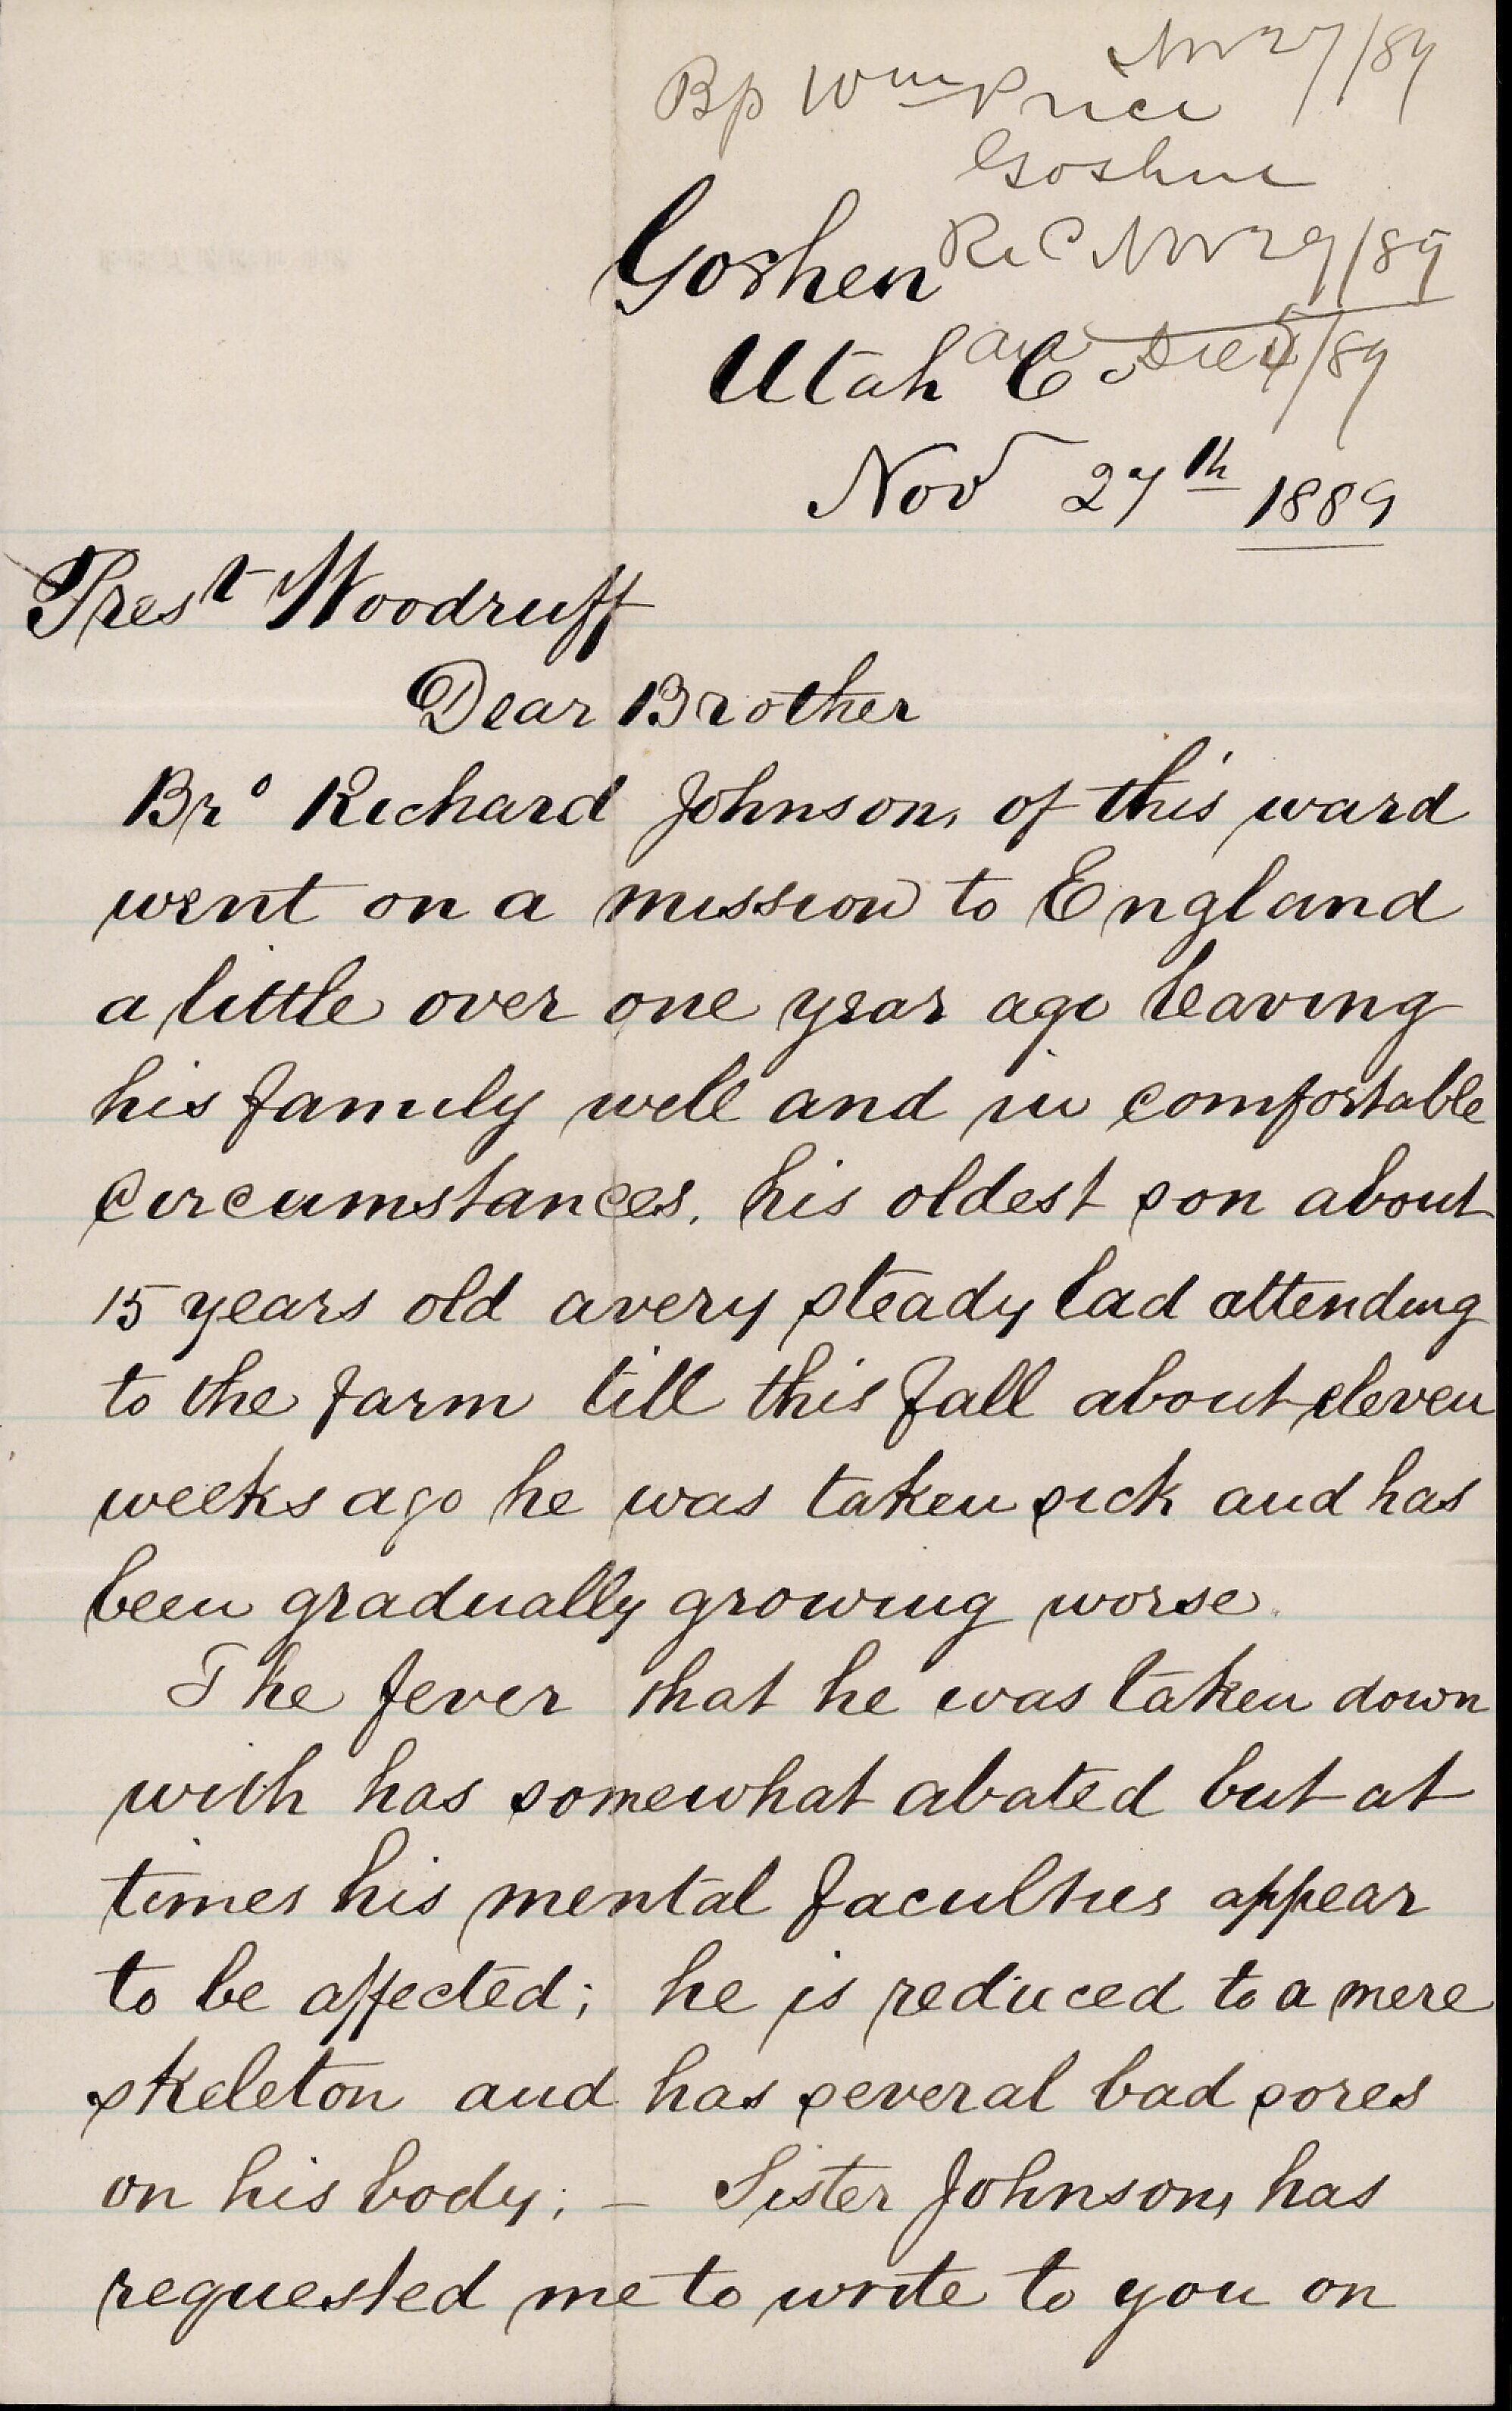 Nov 27/89
Bp Wm Price
Goshen
Rec Nov 29/89
Goshen
Dec /89
Utah Co
Nov 27th 1889
Prest Woodruff
Dear Brother
Bro Richard Johnson, of this ward
went on a mission to England
a little over one year ago leaving
his family well and in comfortable
circumstances, his oldest son about
15 years old a very steady lad attending
to the farm till this fall about eleven
weeks ago he was taken sick and has
been gradually growing worse.
The fever that he was taken down
with has somewhat abated but at
times his mental faculties appear
to be affected; he is reduced to a mere
skeleton and has several bad sores
on his body; — Sister Johnson, has
requested me to write to you on